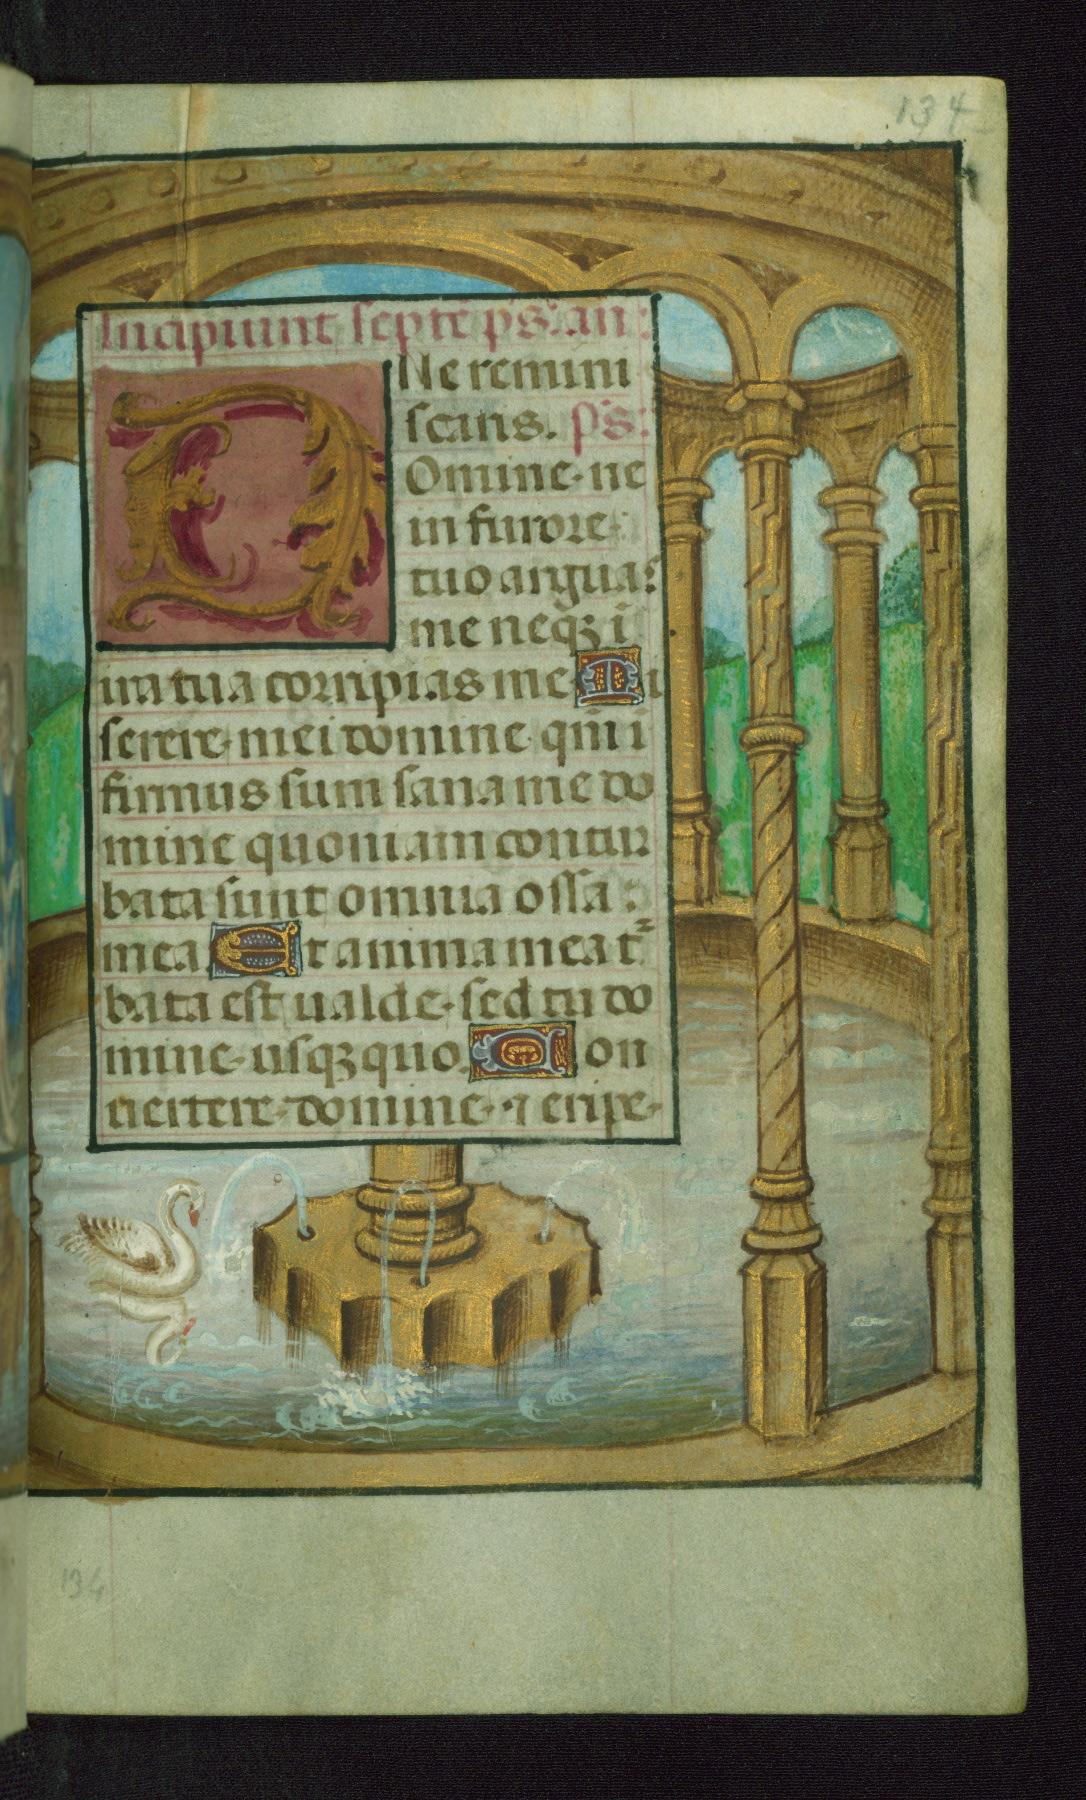 134
Incipiunt septē ps. añ:
Ne remini
scaris. ps:
Omine ne
in furore
tuo arguas
me neq₃ i
ira tua corripias me Mi
serere mei domine qm̄ i
firmus sum sana me do
mine quoniam contur
bata sunt omnia ossa
mea Et anima mea t̄r
bata est ualde sed tu do
mine usq₃ quo Con
uertere domine ⁊ eripe
134